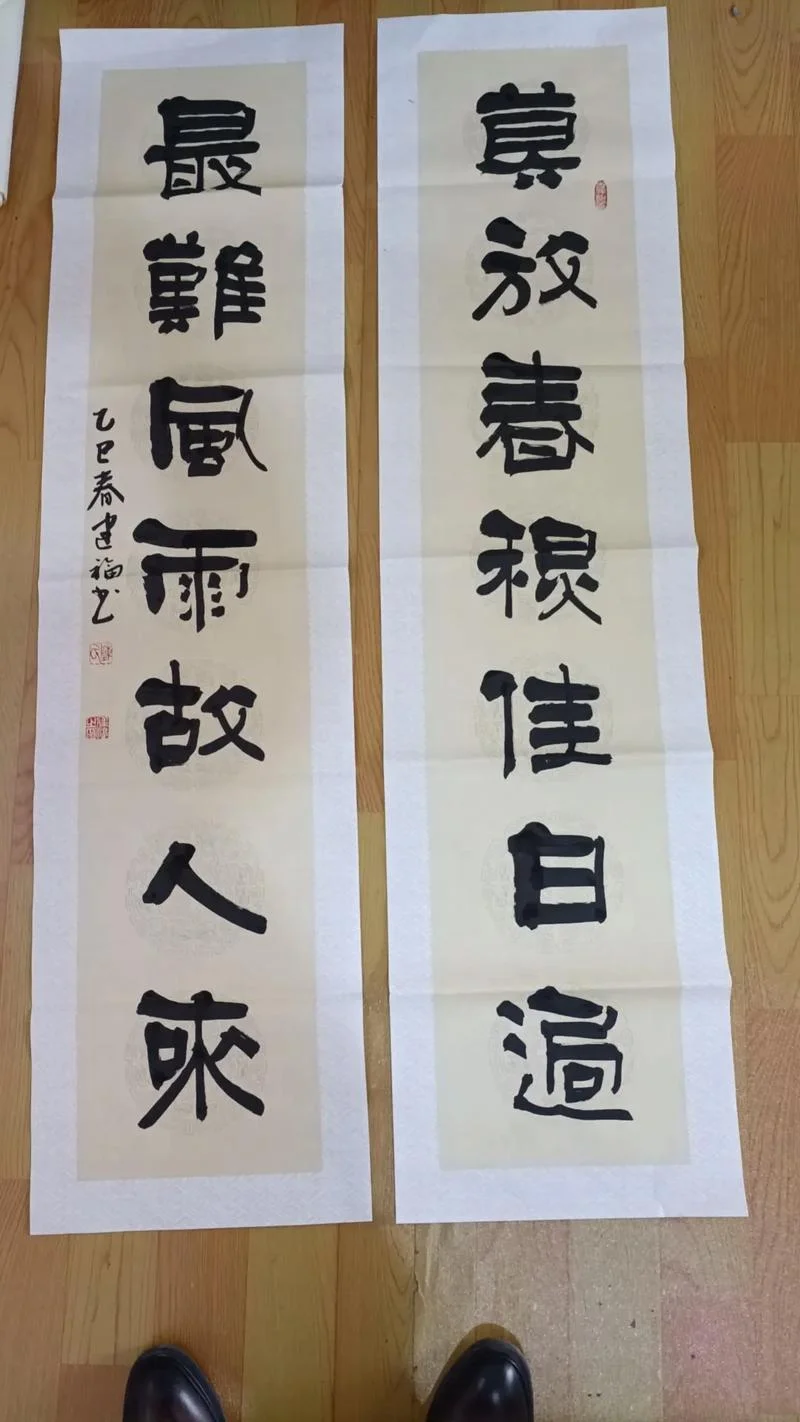 莫放春秋佳日過
最難風雨故人來
乙巳春建福书